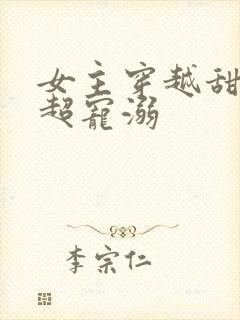 女主穿越甜
超宠溺
李宗仁